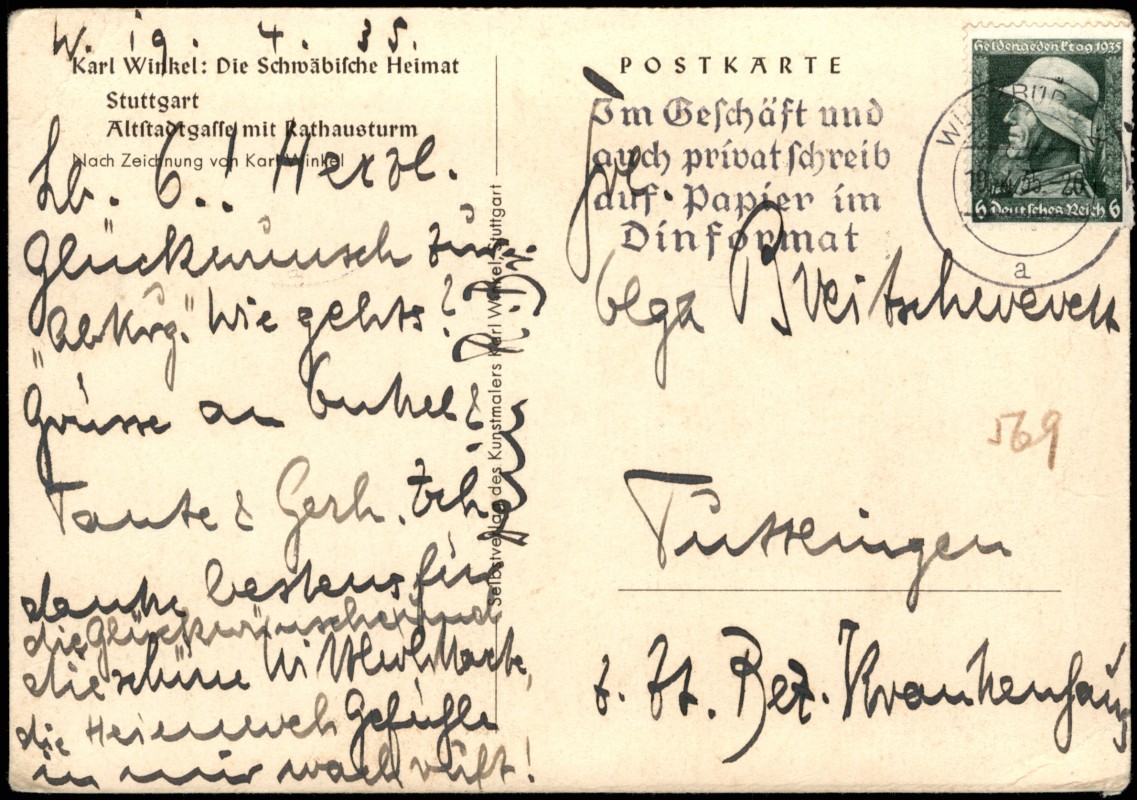 W. 19. 4. 35.
Karl Winkel: Die Schwäbische Heimat
Stuttgart
Altstadtgasse mit Rathausturm
Nach Zeichnung von Karl Winkel
Lb. O.! Herzl.
Glückwunsch zur
"Abkrg." Wie gehts?
Grüsse an Onkel &
Tante & Gerh. Ich
danke bestens für
die Glückwünsche und
die schöne
die Heimweh Gefühle
in mir wach ruft!
Selbstverlag des Kunstmalers Karl Winkel, Stuttgart
POSTKARTE
Im Geschäft und
auch privat schreib
auf Papier im
Dinformat
Heldengedenktag 1935
6 Deutsches Reich 6
a
Frl.
Olga Breitschwerdt
569
Tuttlingen
z. Zt. Bez. Krankenhaus